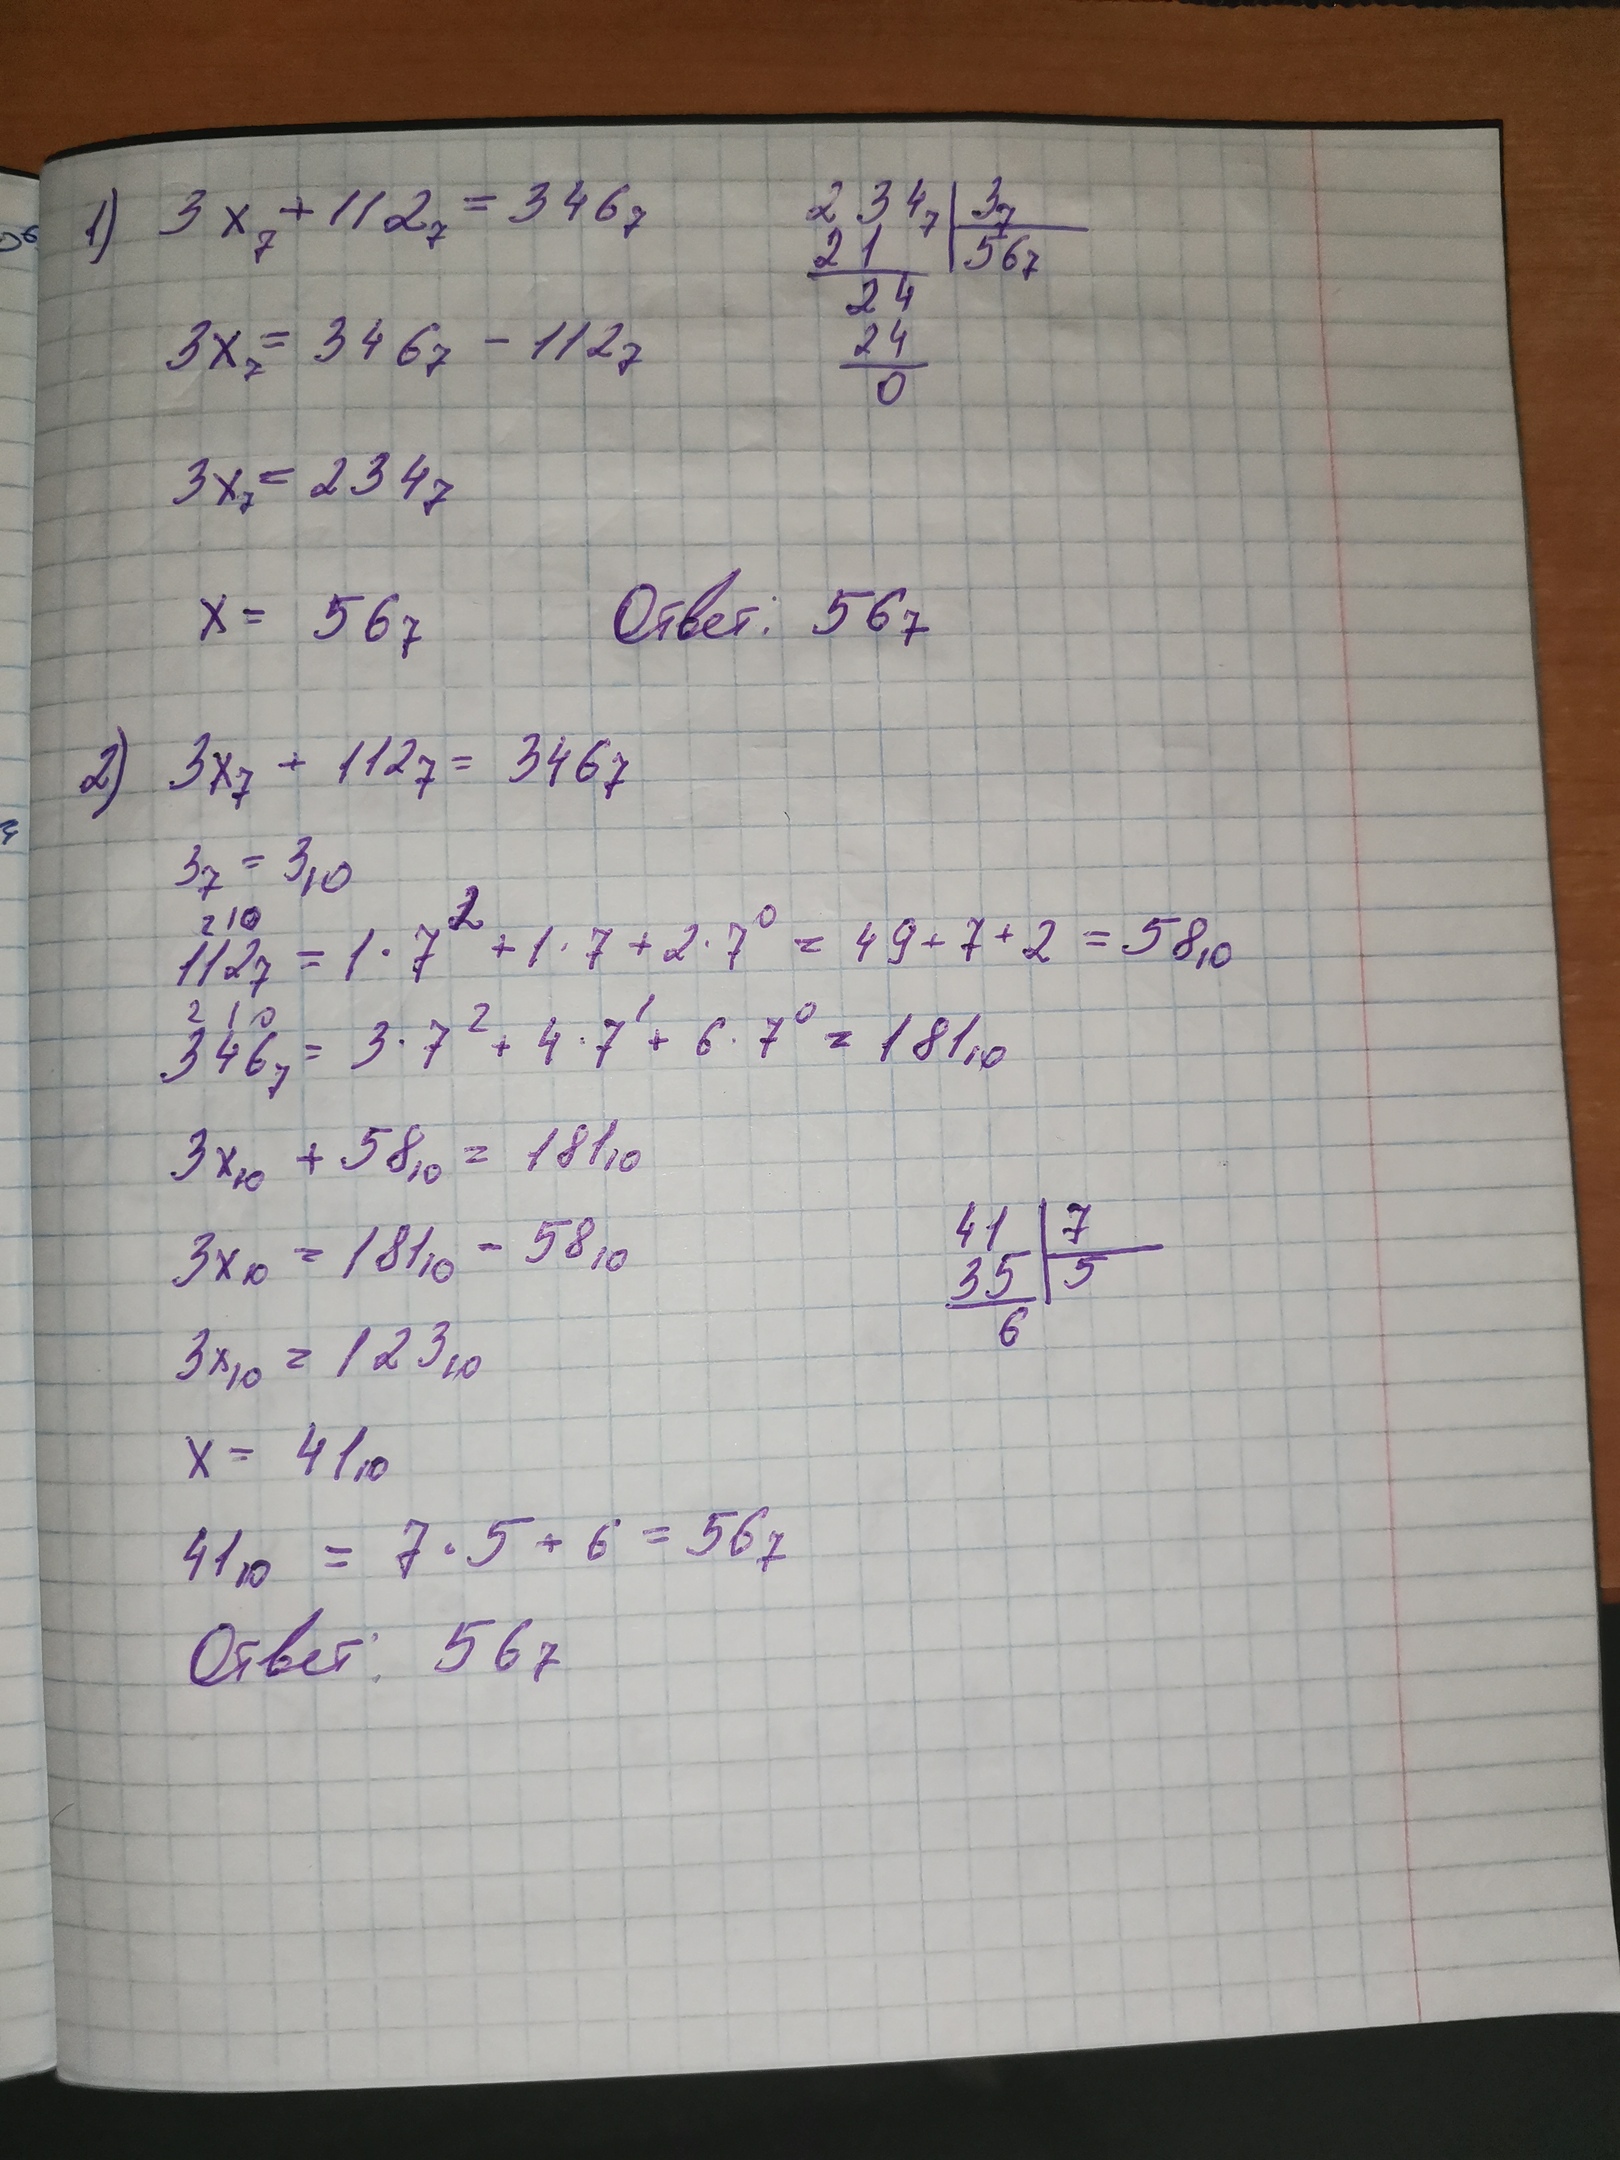 1) 3x₇ + 112₇ = 346₇
3x₇ = 346₇ - 112₇
3x₇ = 234₇
x = 56₇ Ответ: 56₇
234₇ | 3₇
21 | 56₇
24
24
0
2) 3x₇ + 112₇ = 346₇
3₇ = 3₁₀
2 1 0
112₇ = 1·7² + 1·7 + 2·7⁰ = 49 + 7 + 2 = 58₁₀
2 1 0
346₇ = 3·7² + 4·7¹ + 6·7⁰ = 181₁₀
3x₁₀ + 58₁₀ = 181₁₀
3x₁₀ = 181₁₀ - 58₁₀
3x₁₀ = 123₁₀
x = 41₁₀
41 | 7
35 | 5
6
41₁₀ = 7·5 + 6 = 56₇
Ответ: 56₇